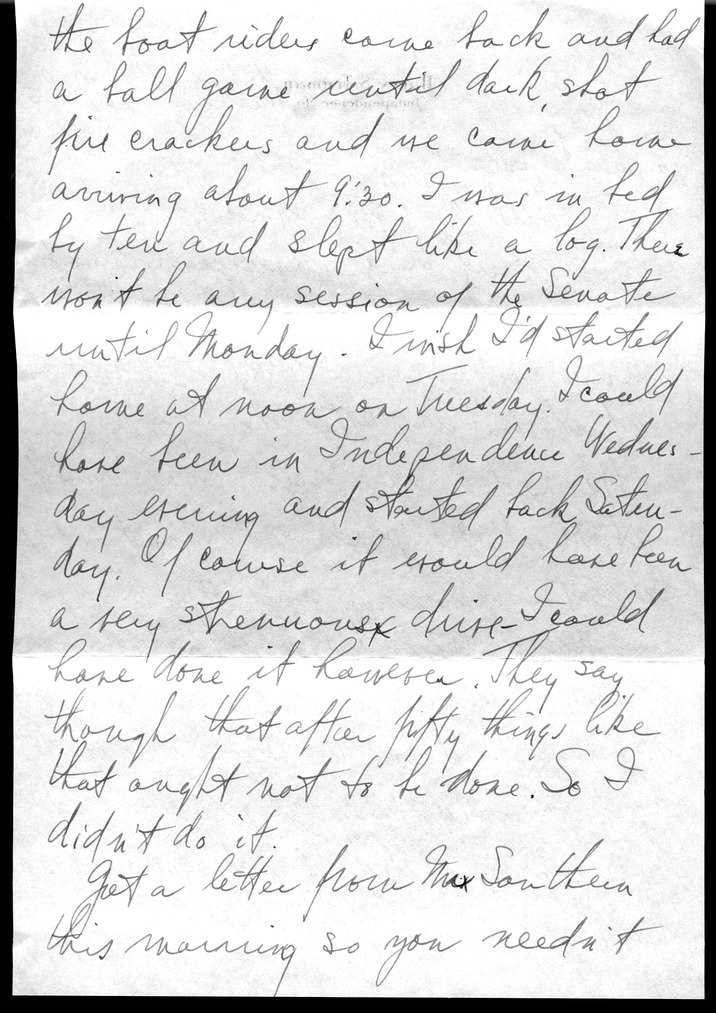 the boat riders came back and had
a ball game until dark, shot
fire crackers and we came home
arriving about 9:30. I was in bed
by ten and slept like a log. There
won't be any session of the Senate
until Monday. I wish I'd started
home at noon on Tuesday. I could
have been in Independence Wednes-
day evening and started back Satur-
day. Of course it would have been
a very strenuous drive - I could
have done it however. They say
though that after fifty things like
that ought not to be done. So I
didn't do it.
Got a letter from Southern
this morning so you needn't